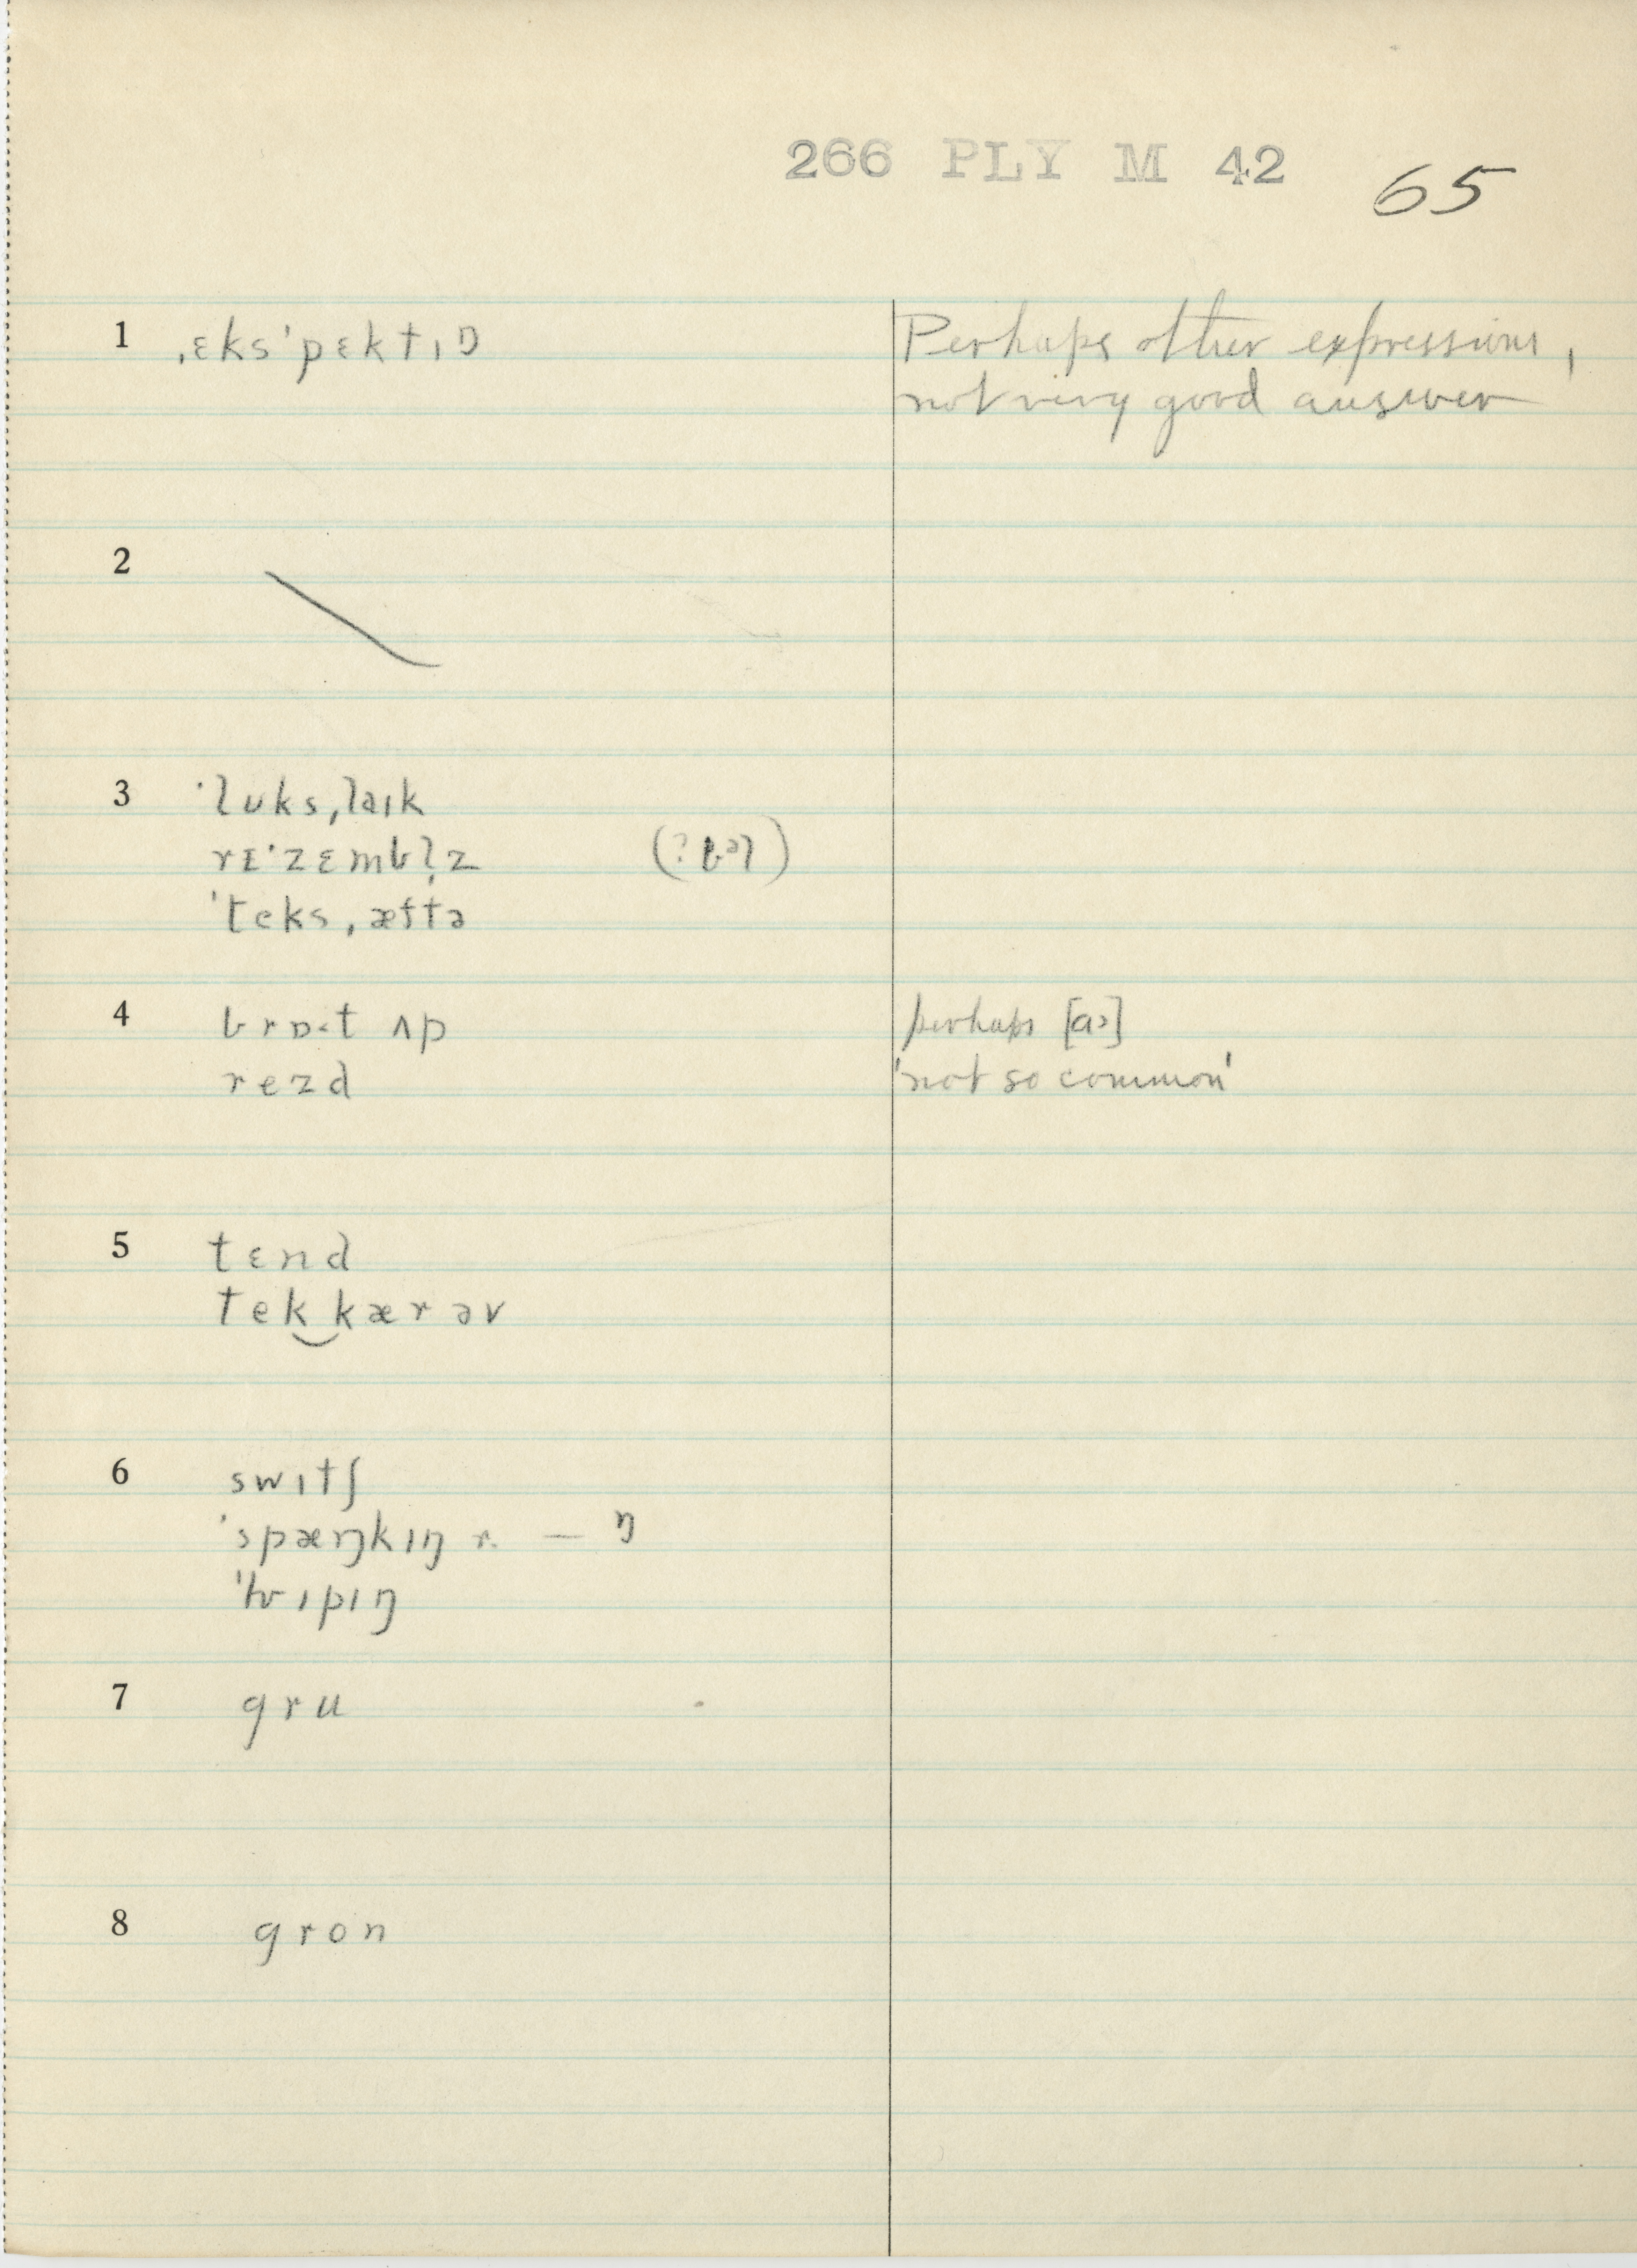 266 PLY M 42 65
1 ˌɛksˈpɛktɪŋ Perhaps other expressions,
not very good answer
2
3 ˈlʊksˌlaɪk
rɪˈzɛmbl̩z (? bəl)
ˈteksˌæftə
4 brɒˑt ʌp perhaps [a>]
rezd 'not so common'
5 tɛnd
tek‿kær əv
6 swɪtʃ
ˈspæŋkɪŋ r. — ŋ
ˈhwɪpɪŋ
7 gru
8 gron